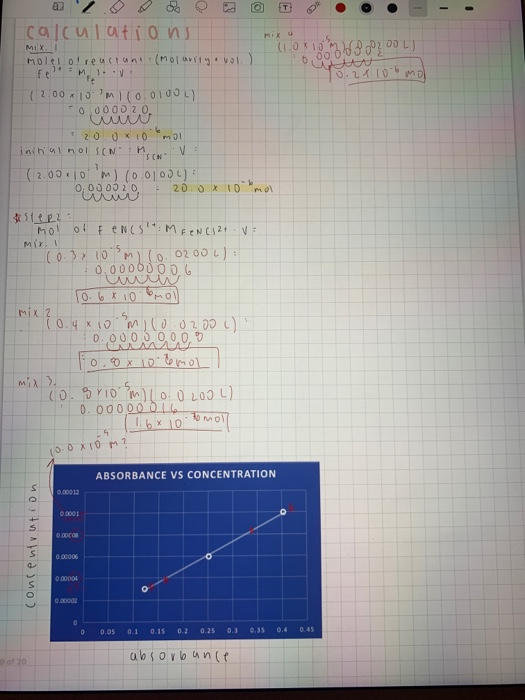 calculations
mix 1
moles of reactant: (molarity · vol.)
Fe³⁺ = M Fe³⁺ · V =
(2.00 × 10⁻³ M)(0.0100 L)
= 0.000020
= 20.0 × 10⁻⁶ mol
initial mol SCN⁻ = M SCN⁻ · V =
(2.00 × 10⁻³ M)(0.0100 L) =
0.000020 = 20.0 × 10⁻⁶ mol
*Step 2:
mol of FeNCS²⁺ : M FeNCS²⁺ · V =
mix. 1
(0.3 × 10⁻⁵ M)(0.0200 L) =
0.00000006
0.6 × 10 mol
mix 2
(0.4 × 10⁻⁵ M)(0.0200 L)
0.00000008
0.8 × 10 mol
mix 3.
(0.8 × 10⁻⁵ M)(0.0200 L)
0.00000016
1.6 × 10 mol
mix 4
(1.0 × 10⁻⁵ M)(0.0200 L)
mol
10.0 × 10 M?
ABSORBANCE VS CONCENTRATION
concentration
0.00012
0.0001
0.00008
0.00006
0.00004
0.00002
0
0 0.05 0.1 0.15 0.2 0.25 0.3 0.35 0.4 0.45
absorbance